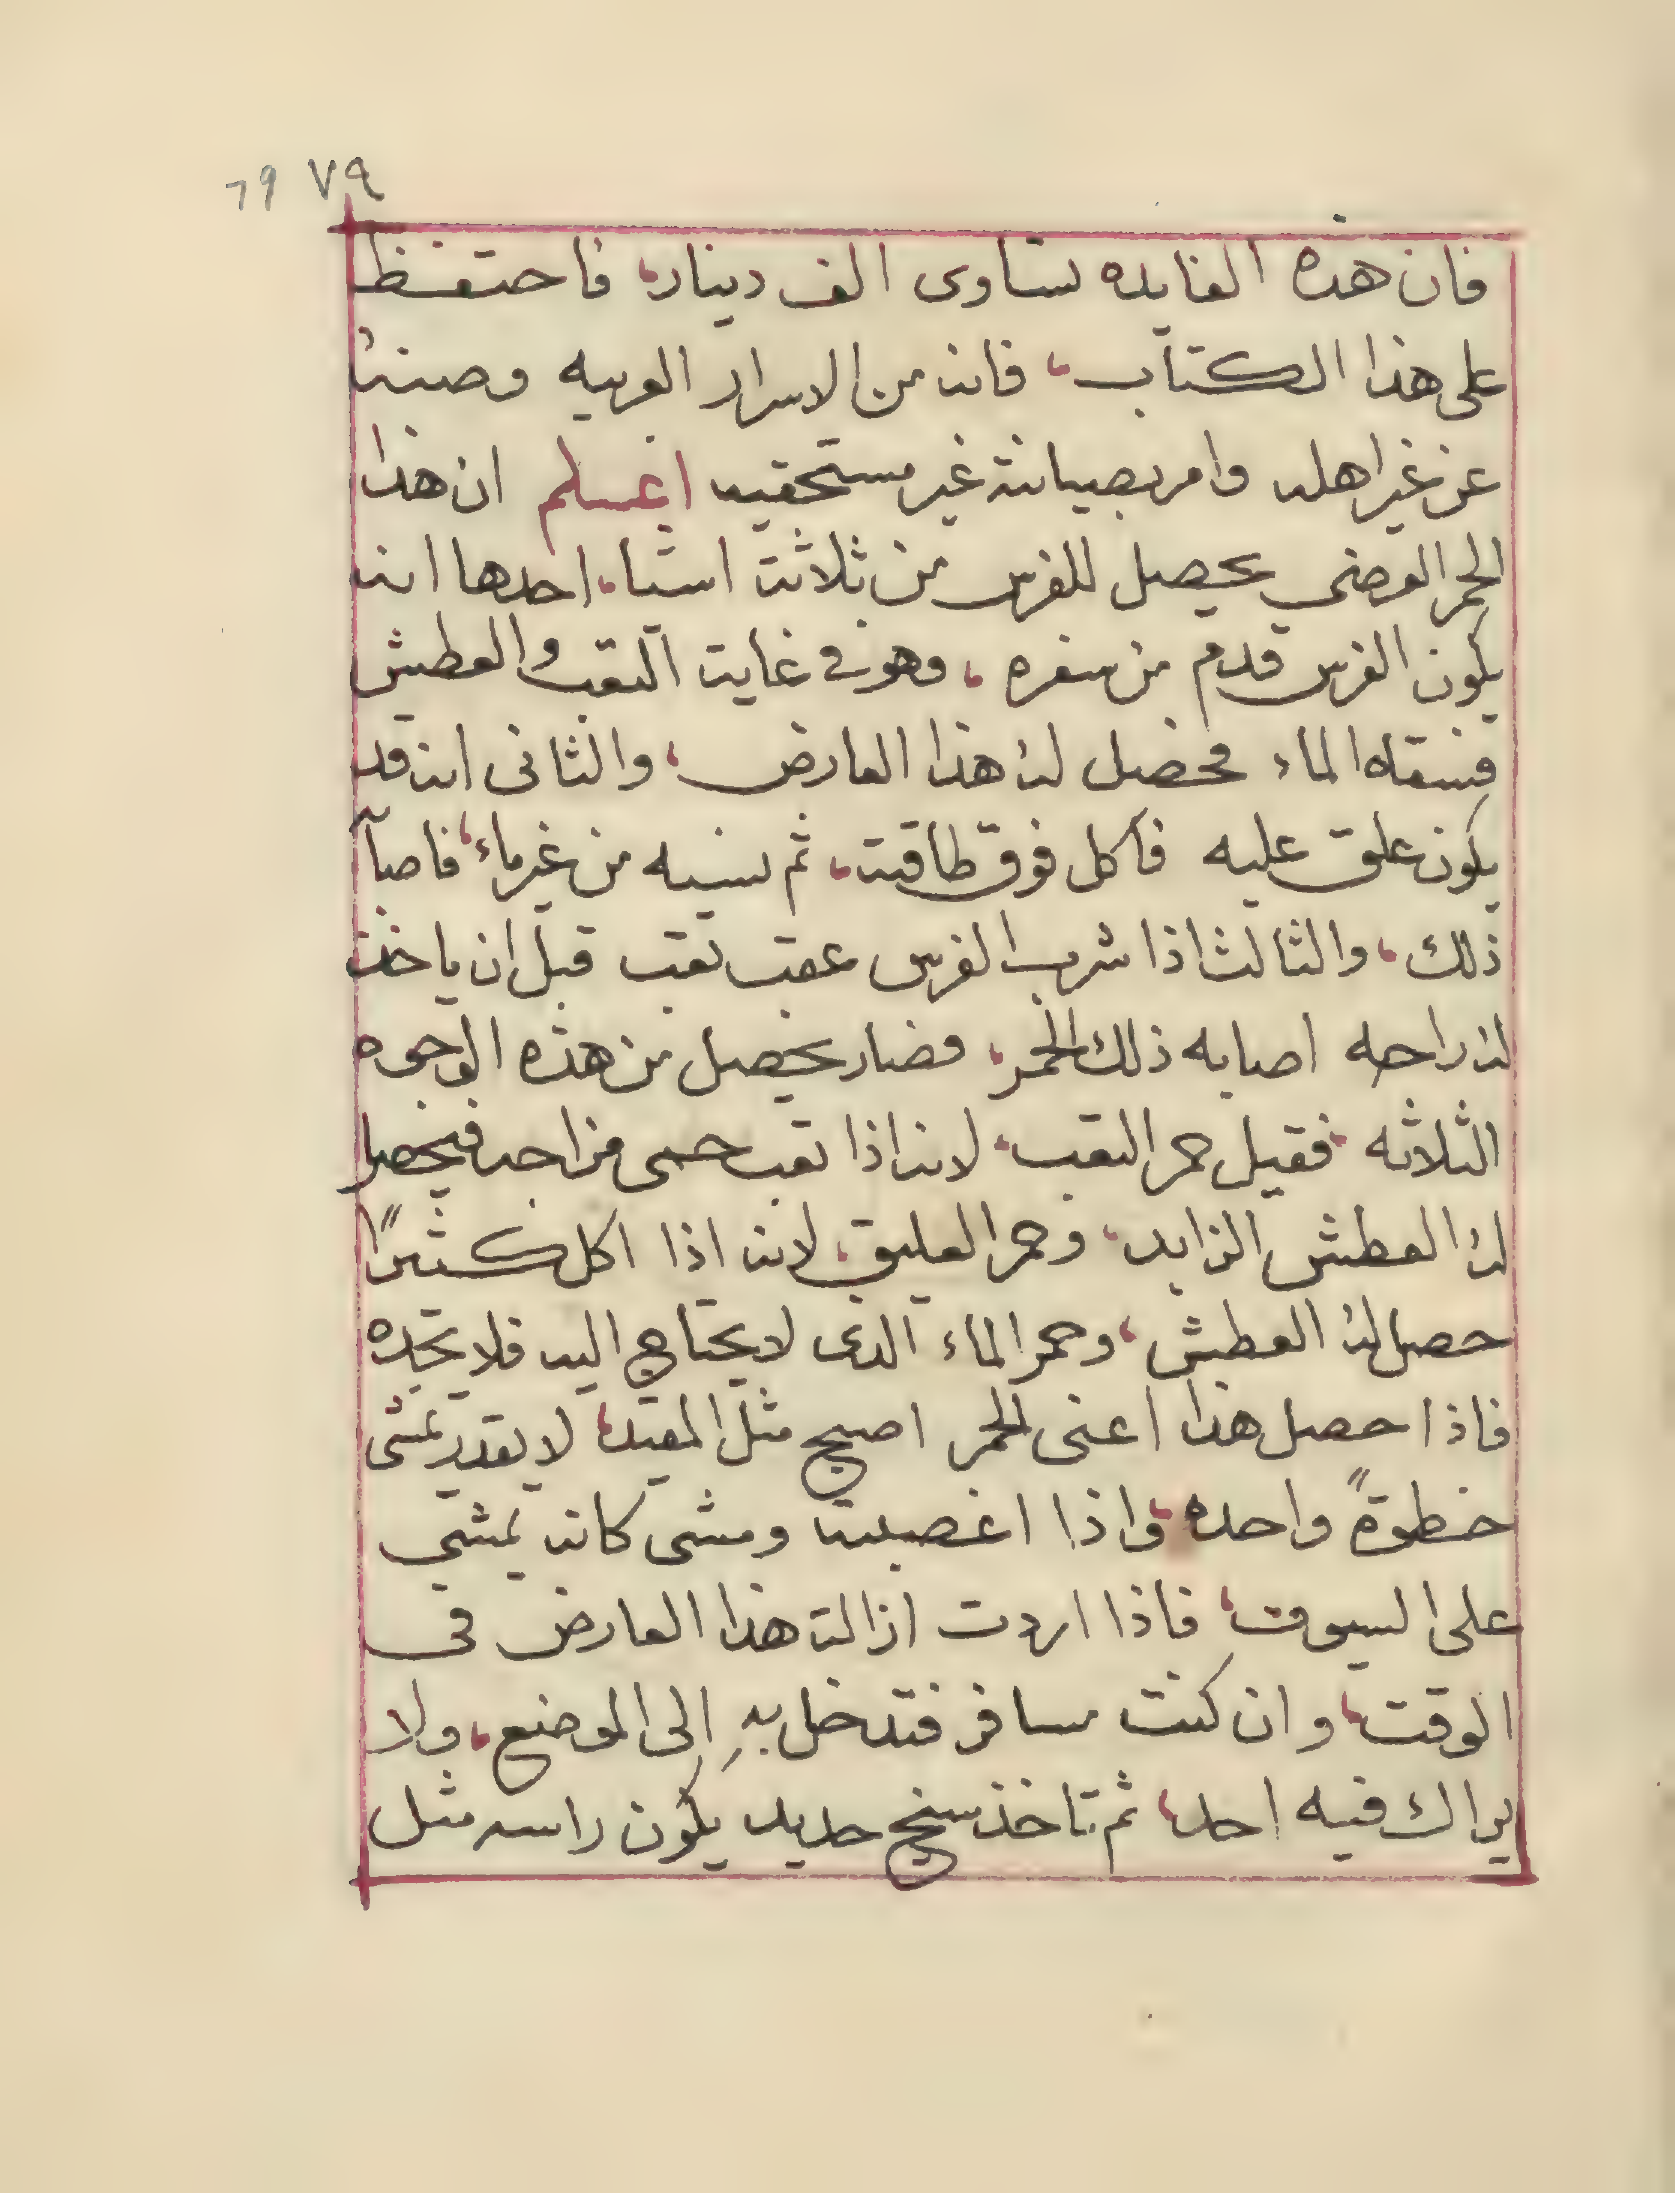 ٧٩ ٦٩
فان هذه الفايده تساوى الف دينار، فاحتفظ
على هذا الكتاب، فانه من الاسرار الغريبه وصنه
عن غير اهله وامر بصيانته غير مستحقيه اعلم ان هذا
الحمر العرضي يحصل للفرس من ثلاثة اشيا، احدها انه
يكون الفرس قدم من سفره، وهو في غاية التعب والعطش
فسقاه الماء فحصل له هذا العارض، والثانى انه قد
يكون علق عليه فاكل فوق طاقته، ثم نسيه من غير ماء، فاصابه
ذلك، والثالث اذا شرب الفرس عقب تعب قبل ان ياخذ
له راحه اصابه ذلك الحمر، فصار يحصل من هذه الوجوه
الثلاثه، فقيل حمر التعب، لانه اذا تعب حمى مزاجه فيحصل
له العطش الزايد، وحمر العليق، لانه اذا اكل كثيراً
حصل له العطش، وحمر الماء الذى لا يحتاج اليه فلا تجده
فاذا حصل هذا اعنى الحمر اصبح مثل المقيد، لا يقدر يمشى
خطوةً واحده، واذا اغصبته ومشى كانه يمشي
على السيوف، فاذا اردت ازالة هذا العارض فى
الوقت، وان كنت مسافر فتدخل بهِ الى الموضع، ولا
يراك فيه احد، ثم تاخذ سيخ حديد يكون راسه مثل